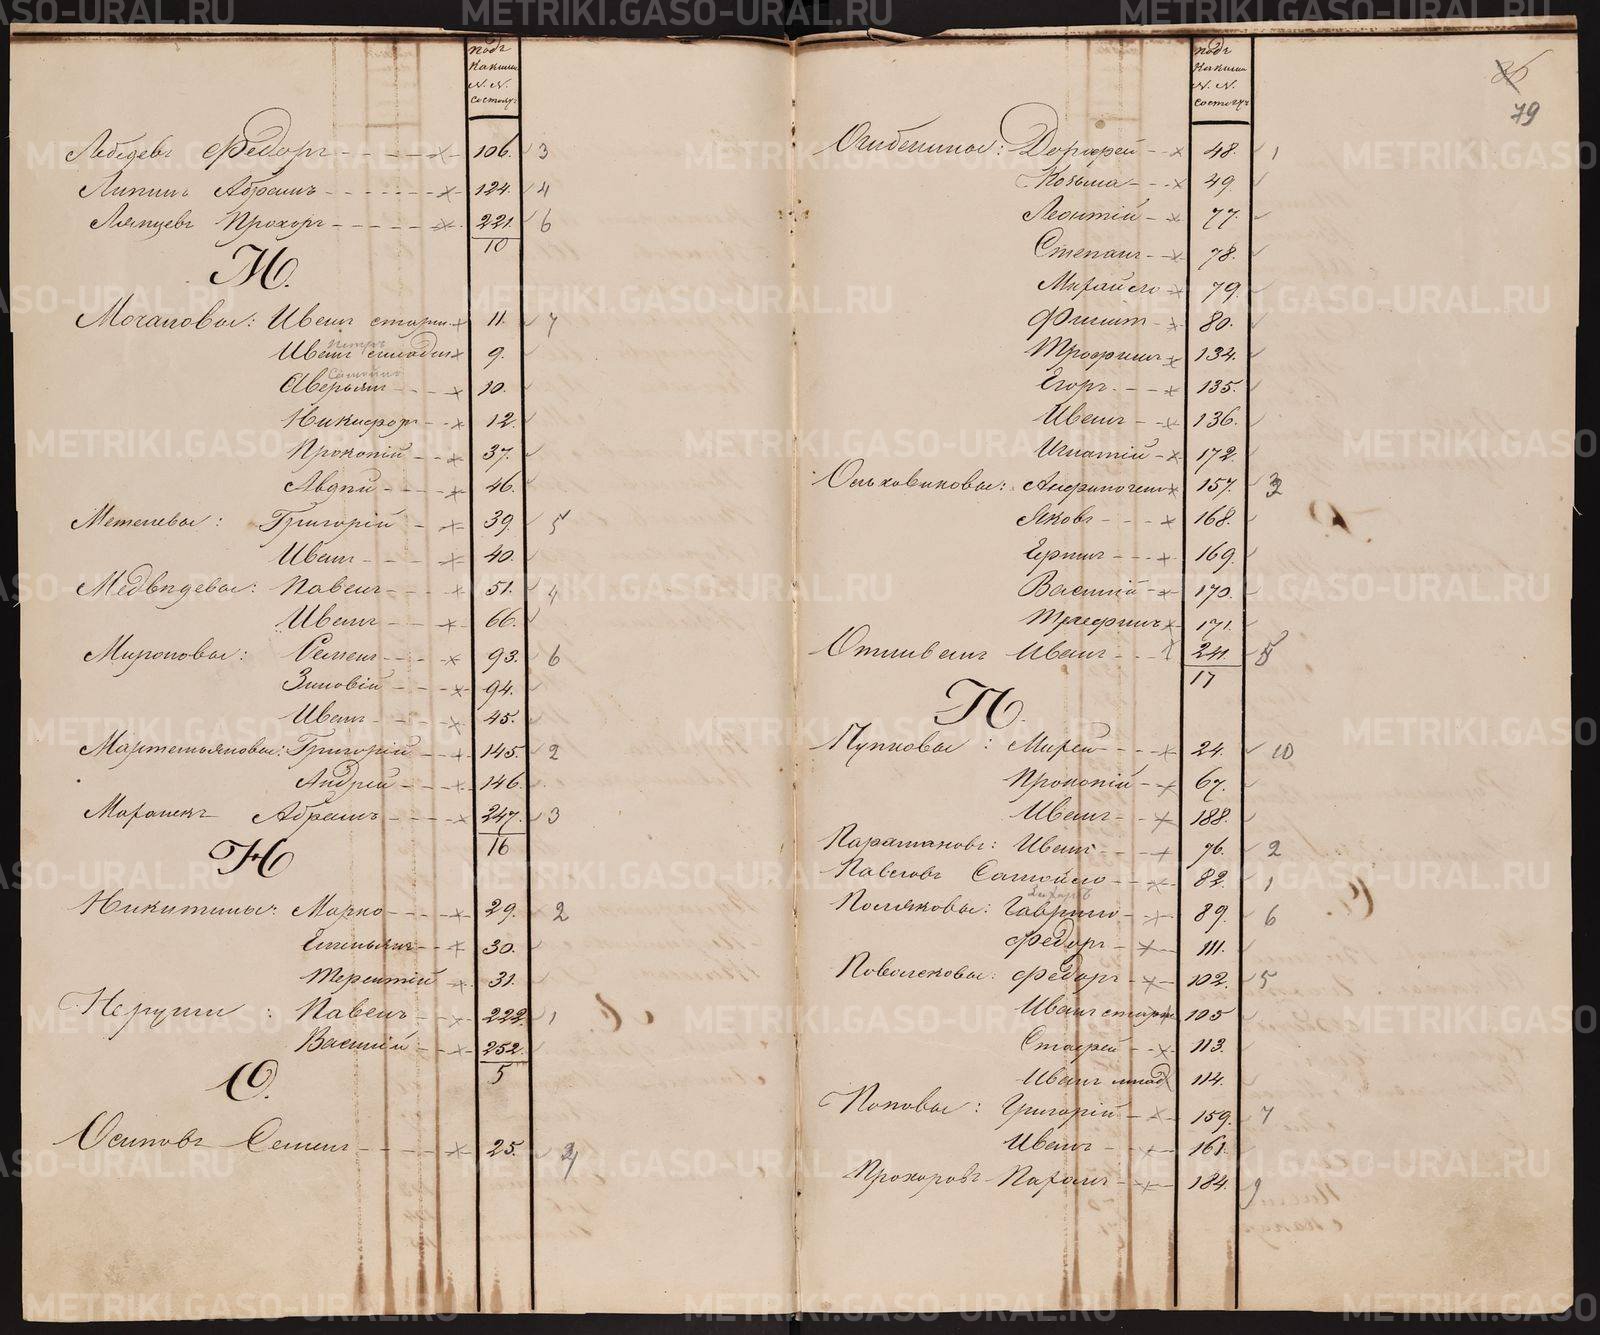 подъ
какими
N. N.
состоятъ
Лебедевъ Федоръ 106. 3
Липинъ Абрамъ 124. 4
Ляпцевъ Прохоръ 221. 6
10
М.
Мочаловы: Иванъ старш. 11. 7
Петръ
Иванъ младш. 9.
Самойло
Аверьянъ 10.
Никифоръ 12.
Прокопій 37.
Авдей 46.
Метелевы: Григорій 39. 5
Иванъ 40.
Медвѣдевы: Павелъ 51. 4
Иванъ 66.
Мироновы: Семенъ 93. 6
Зиновій 94.
Иванъ 45.
Мартемьяновы: Григорій 145. 2
Андрей 146.
Абрамъ 247. 3
16
Н
Никитины: Марко 29. 2
Емельянъ 30.
Терентій 31.
Павелъ 222. 1
Василій 252.
5
О.
Осиповъ Семенъ 25.
подъ
какими
N. N.
состоятъ
79
Огибенины: Дорофей 48. 1
Козьма 49.
Леонтій 77.
Степанъ 78.
Михайло 79.
Филипъ 80.
Трофимъ 134.
Егоръ 135.
Иванъ 136.
Игнатій 172.
Ольховиковы: 157.
Яковъ 168.
169.
Василій 170.
Трофимъ 171.
Иванъ 241.
17
П.
Пупковы: 24. 10
Прокопій 67.
Иванъ 188.
Иванъ 76. 2
Павловъ Самойло 82. 1
Захаръ
Поляковы: Гаврило 89. 6
Федоръ 111.
Федоръ 102. 5
Иванъ старш 105
113.
Иванъ млад 114.
Поповы: Григорій 159. 7
Иванъ 161.
Прохоровъ 184. 9
METRIKI.GASO-URAL.RU